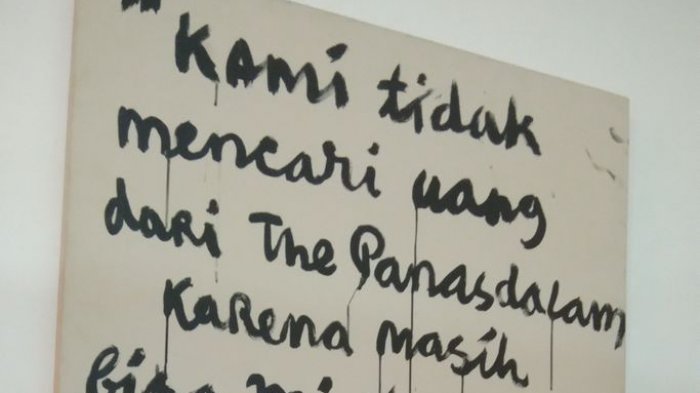 "KAMi tidak
mencari uang
dari The Panasdalam
KaRena masih